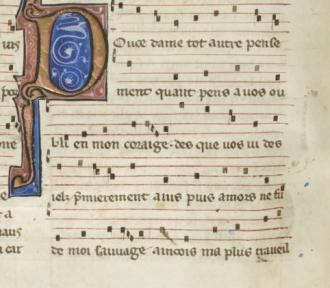 Douce dame tot autre pense
ment quant pens a uos ou
bli en mon coraige · des que uos ui des
ielz p̃mierement ains puis amors ne fu
de moi sauuage aincois ma plus traueil